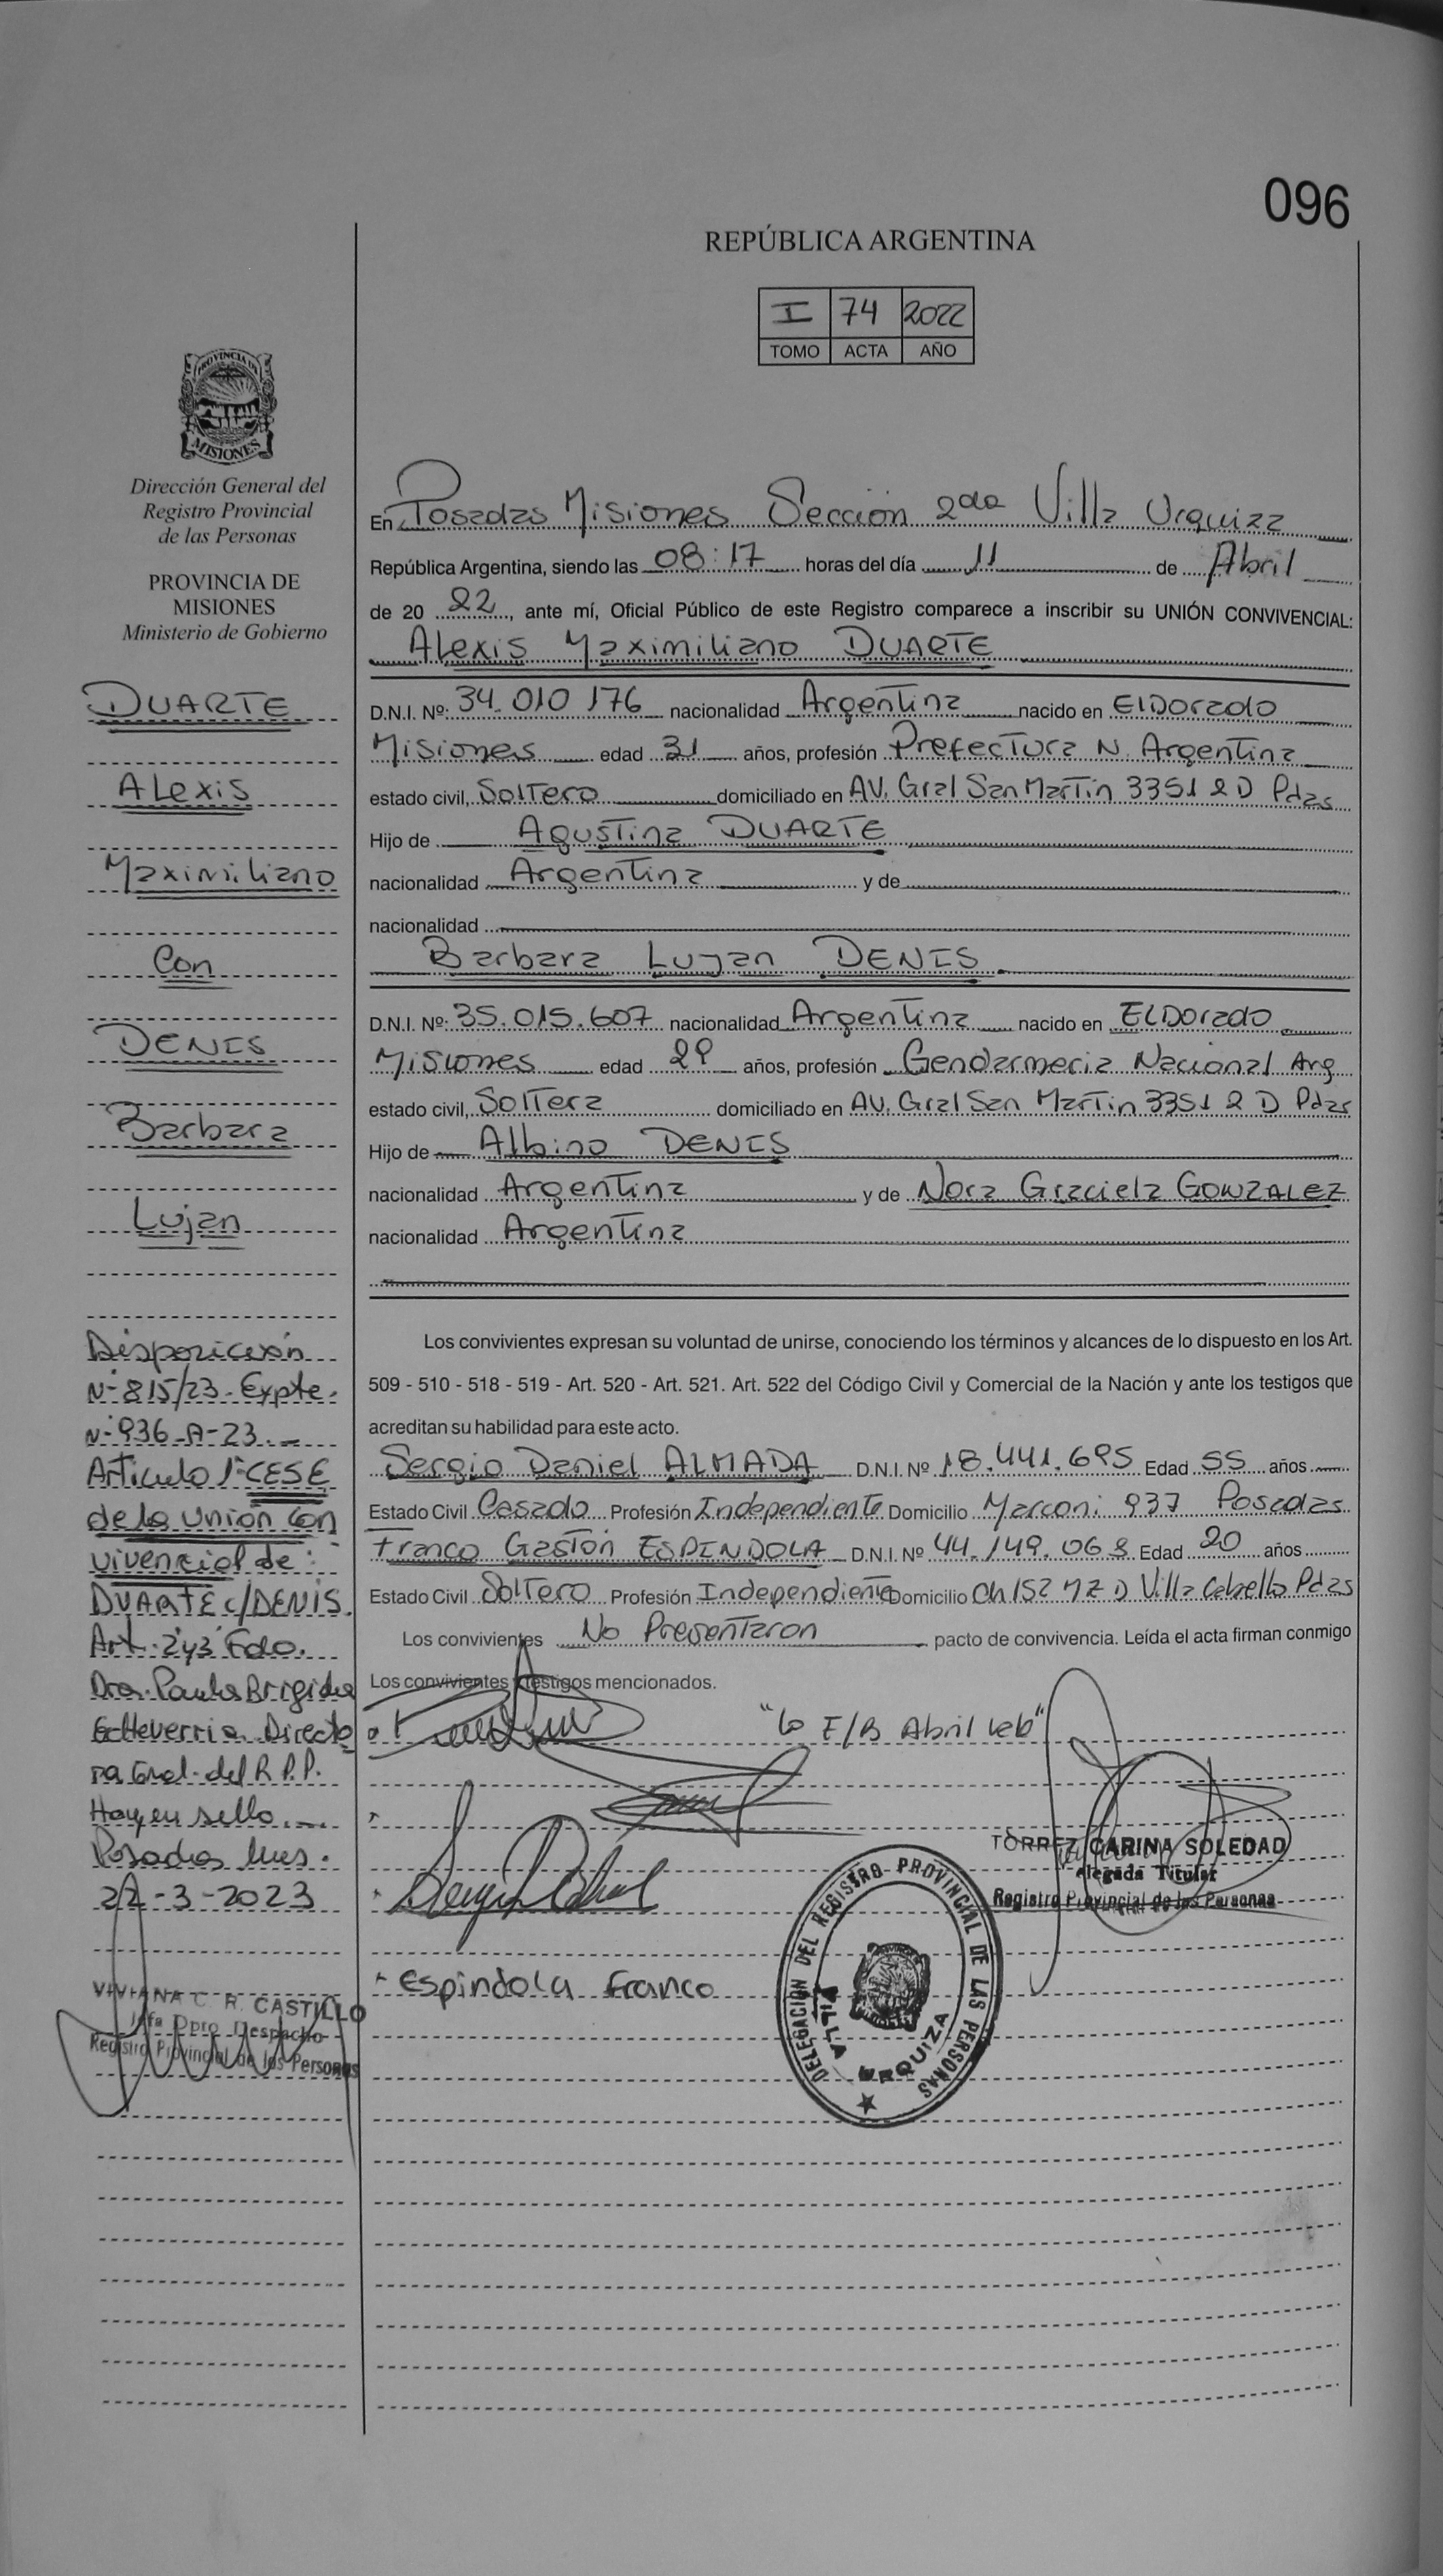 096
REPÚBLICA ARGENTINA
I 74 2022
TOMO ACTA AÑO
PROVINCIA DE
MISIONES
Dirección General del
Registro Provincial
de las Personas
PROVINCIA DE
MISIONES
Ministerio de Gobierno
DUARTE
Alexis
Maximiliano
Con
DENIS
Barbara
Lujan
Disposición
N° 815/23 - Expte.
N° 936-A-23.-
Articulo 1° CESE
de la Unión Con
vivencial de:
DUARTE c/DENIS.
Art. 2 y 3 Fdo.
Dra. Paula Brigida
Echeverria Directo
ra Gral. del R.P.P.
Hay un sello.-
Posadas Mnes.
22-3-2023
VIVIANA C. R. CASTILLO
Jefa Dpto Despacho
Registro Provincial de las Personas
En Posadas Misiones Sección 2da Villa Urquiza
República Argentina, siendo las 08:17 horas del día 11 de Abril
de 20 22, ante mí, Oficial Público de este Registro comparece a inscribir su UNIÓN CONVIVENCIAL:
Alexis Maximiliano DUARTE
D.N.I. Nº: 34.010 176 nacionalidad Argentina nacido en ElDorado
Misiones edad 31 años, profesión Prefectura N. Argentina
estado civil, Soltero domiciliado en AV. Gral San Martin 3351 2 D Pdas
Hijo de Agustina DUARTE
nacionalidad Argentina y de
nacionalidad
Barbara Lujan DENIS
D.N.I. Nº: 35.015.607 nacionalidad Argentina nacido en ElDorado
Misiones edad 29 años, profesión Gendarmeria Nacional Arg
estado civil, Soltera domiciliado en AV. Gral San Martin 3351 2 D Pdas
Hijo de Albino DENIS
nacionalidad Argentina y de Nora Graciela GONZALEZ
nacionalidad Argentina
Los convivientes expresan su voluntad de unirse, conociendo los términos y alcances de lo dispuesto en los Art.
509 - 510 - 518 - 519 - Art. 520 - Art. 521. Art. 522 del Código Civil y Comercial de la Nación y ante los testigos que
acreditan su habilidad para este acto.
Sergio Daniel ALMADA D.N.I. Nº 18.441.695 Edad 55 años
Estado Civil Casado Profesión Independiente Domicilio Marconi 937 Posadas
Franco Gastón ESPINDOLA D.N.I. Nº 44.149.063 Edad 20 años
Estado Civil Soltero Profesión Independiente Domicilio Ch 152 MZ D Villa Cabello Pdas
Los convivientes No Presentaron pacto de convivencia. Leída el acta firman conmigo
Los convivientes y testigos mencionados.
E/B Abril
TORREZ CARINA SOLEDAD
elegada Titular
Registro Provincial de las Personas
Espindola Franco
DELEGACION DEL REGISTRO PROVINCIAL DE LAS PERSONAS
VILLA URQUIZA